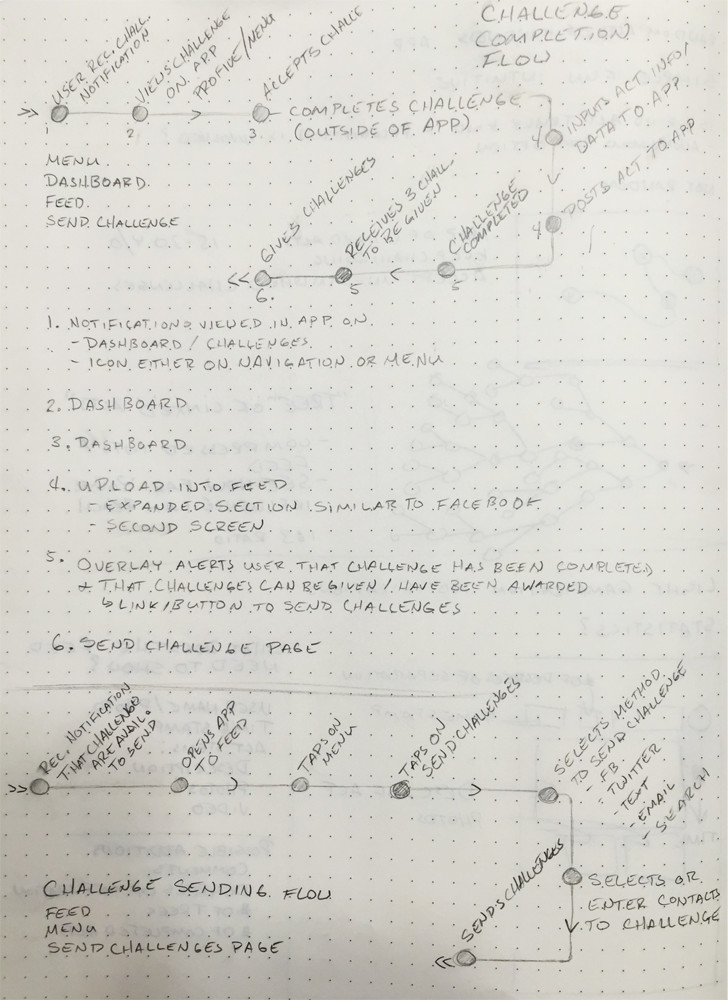 CHALLENGE
COMPLETION
FLOW
USER REC. CHALL.
NOTIFICATION
VIEWS CHALLENGE
ON APP
PROFILE/MENU
ACCEPTS CHALLE
COMPLETES CHALLENGE
(OUTSIDE OF APP)
INPUTS ACT. INFO/
DATA TO APP
POSTS ACT. TO APP
1
2
3
4
4
MENU
DASHBOARD.
FEED.
SEND CHALLENGE
CHALLENGE
COMPLETED
RECEIVES 3 CHALL.
TO BE GIVEN
GIVES CHALLENGES
5
5
6.
1. NOTIFICATIONS VIEWED IN APP ON.
- DASHBOARD / CHALLENGES.
- ICON EITHER ON NAVIGATION OR MENU
2. DASHBOARD.
3. DASHBOARD
4. UPLOAD INTO FEED.
- EXPANDED SECTION SIMILAR TO FACEBOOK
- SECOND SCREEN
5. OVERLAY ALERTS USER THAT CHALLENGE HAS BEEN COMPLETED
+ THAT CHALLENGES CAN BE GIVEN / HAVE BEEN AWARDED
↳ LINK/BUTTON TO SEND CHALLENGES
6. SEND CHALLENGE PAGE
REC. NOTIFICATION
THAT CHALLENGE
ARE AVAIL.
TO SEND
OPENS APP
TO FEED
TAPS ON
MENU
TAPS ON
SEND CHALLENGES
SELECTS METHOD
TO SEND CHALLENGE
- FB
- TWITTER
- TEXT
- EMAIL
- SEARCH
SELECTS OR
ENTER CONTACTS
TO CHALLENGE
SENDS CHALLENGES
CHALLENGE SENDING FLOW
FEED
MENU
SEND CHALLENGES PAGE